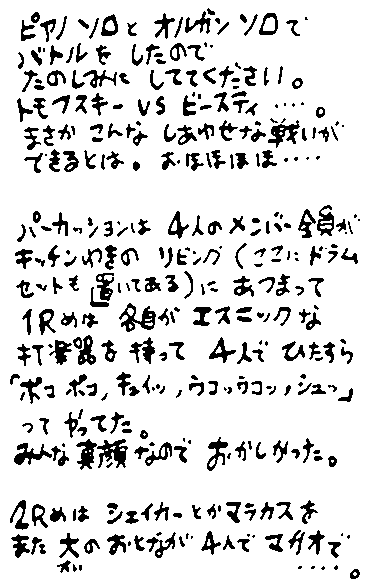 ピアノソロと オルガンソロで
バトルを したので
たのしみに しててください。
トモフスキー VS ビースティ ‥‥。
まさか こんな しあわせな戦いが
できるとは。おほほほほ‥‥
パーカッションは 4人のメンバー全員が
キッチンわきの リビング(ここに ドラム
セットも 置いてある)に あつまって
1Rめは 各自が エスニックな
打楽器を 持って 4人で ひたすら
「ポコ ポコ, キュイッ, ウコッウコッ, シュッ」
って やってた。
みんな 真顔なので おかしかった。
2Rめは シェイカーとかマラカスを
また 大のおとなが 4人で マガオで
だい ‥‥。